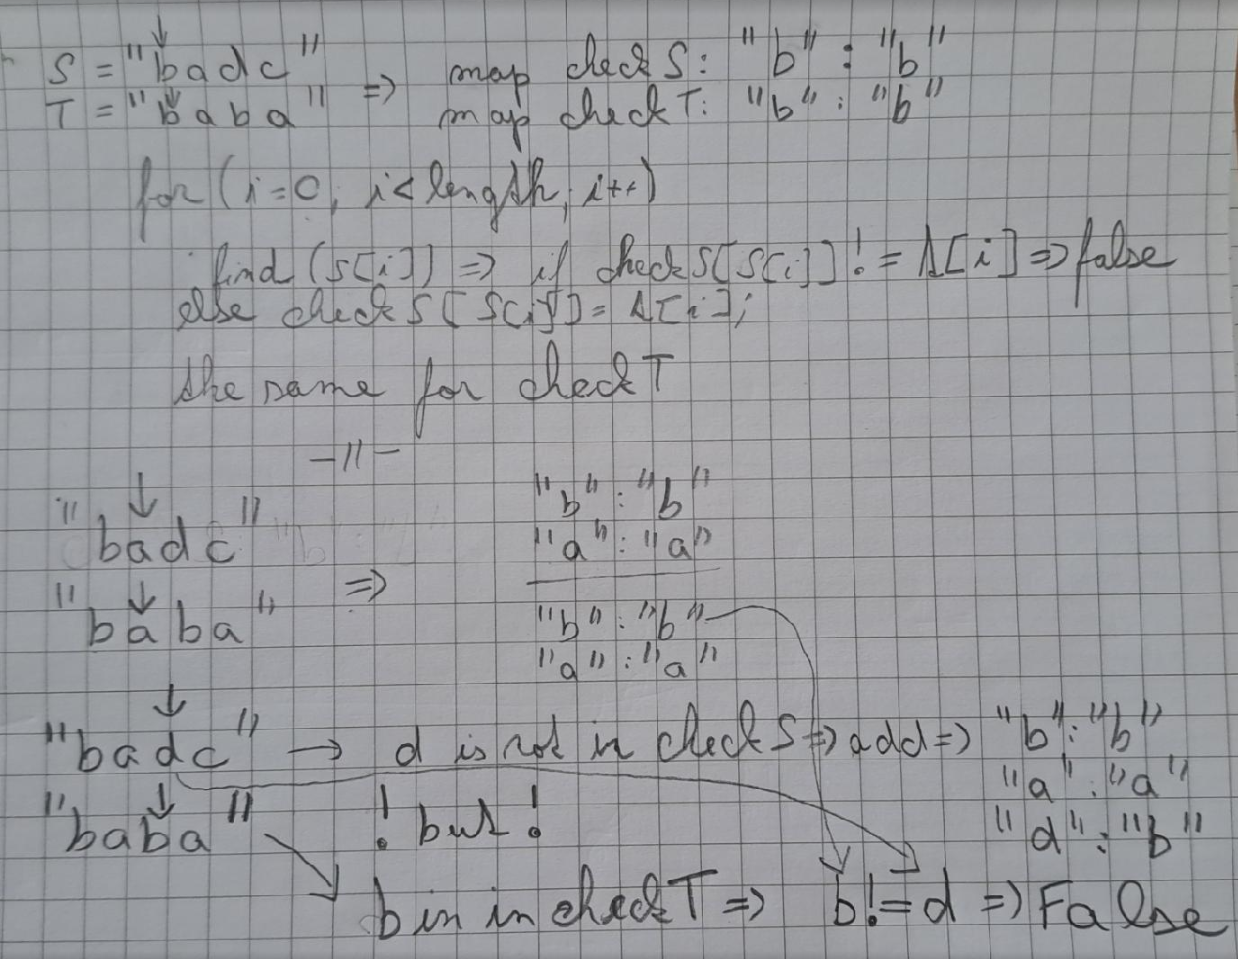 S = "badc" => map checkS: "b" : "b"
T = "baba" map checkT: "b" : "b"
for (i=0, i<length, i++)
find (S[i]) => if checkS[S[i]] != t[i] => false
else checkS[S[i]] = t[i];
the same for checkT
-//-
"badc" => "b" : "b"
"a" : "a"
"baba" "b" : "b"
"a" : "a"
"badc" → d is not in checkS => add => "b" : "b"
"a" : "a"
"baba" ! but ! "d" : "b"
b is in checkT => b != d => False